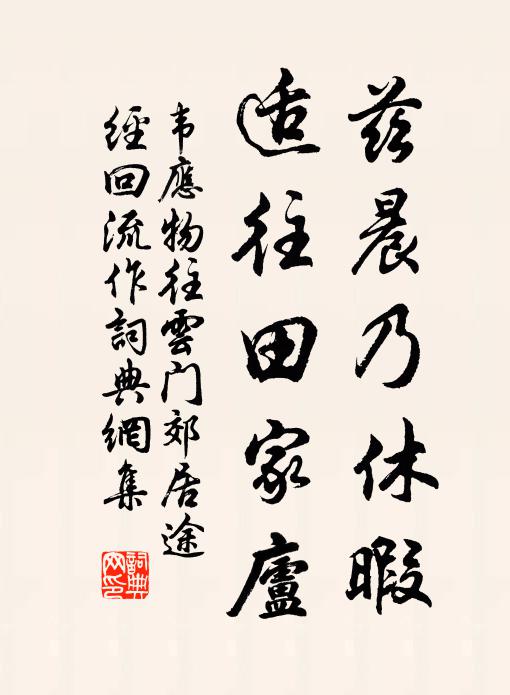 茲晨乃休暇
适往田家廬
韦應物往雲门郊居途
經回流作詞典網集
詞典
网印